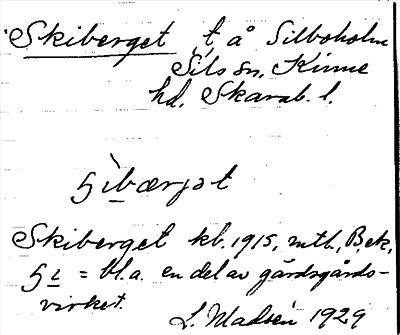 Skiberget t å Silboholm
Sils sn, Kinne
hd. Skarab. l.
Skiberget kb. 1915, mtb., Bek.
= bl.a. en del av gärdsgårds-
virket.
L. Madsén 1929